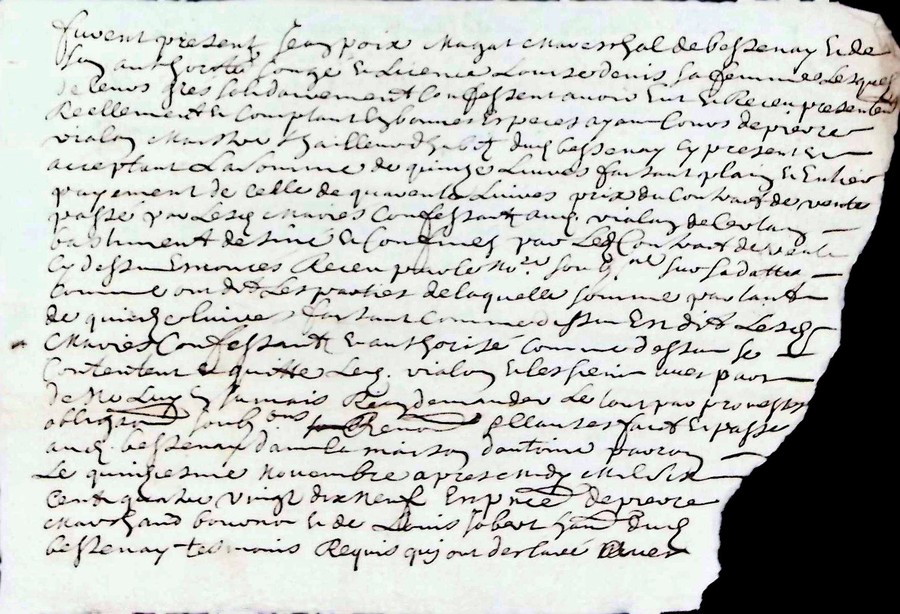 furent present Jean poix Magat Mareschal de bessenay & de
son authorité congé & licence Louise denis sa femme Lesquels
de leurs grés solidairement Confessent avoir Eut & Receu presentem
Reellement & Comptant En bonnes Especes ayan Cours de pierre
vialon Marchand Thailleur dhabitz dud bessenay Cy present &
acceptant La somme de quinze Livres faisant plain & Entier
payement de celle de quarante Livres prix du Contract de vente
passé par Lesd Mariés Confessantz aud. vialon de certain
bastiment desiné & Confiné par Led Contract de vente
Cy dessus Ennoncés Receu par le No.re soubz.né sur sa datte
Comme ont dit Les parties de laquelle somme partant
de quinze Luivres faisant Comme dessus Est dit Lesd
Mariés Confessantz & authorisé Comme dessus se
Contentent & quitte Led. vialon & les siens avec pact
de Ne Luy En Jamais Rien demander Le tout par promesse
obligaon soubz ons Renon & Clauses fait & passé
aud. bessenay dans la maison dantoine pavron
Le quinziesme Novembre apres midy Mil Six
Cent quatre vingt dix Neuf En pnce de pierre
Marchand bouvrier & de Louis Jobert dud
bessenay tesmoins Requis qui ont declaré